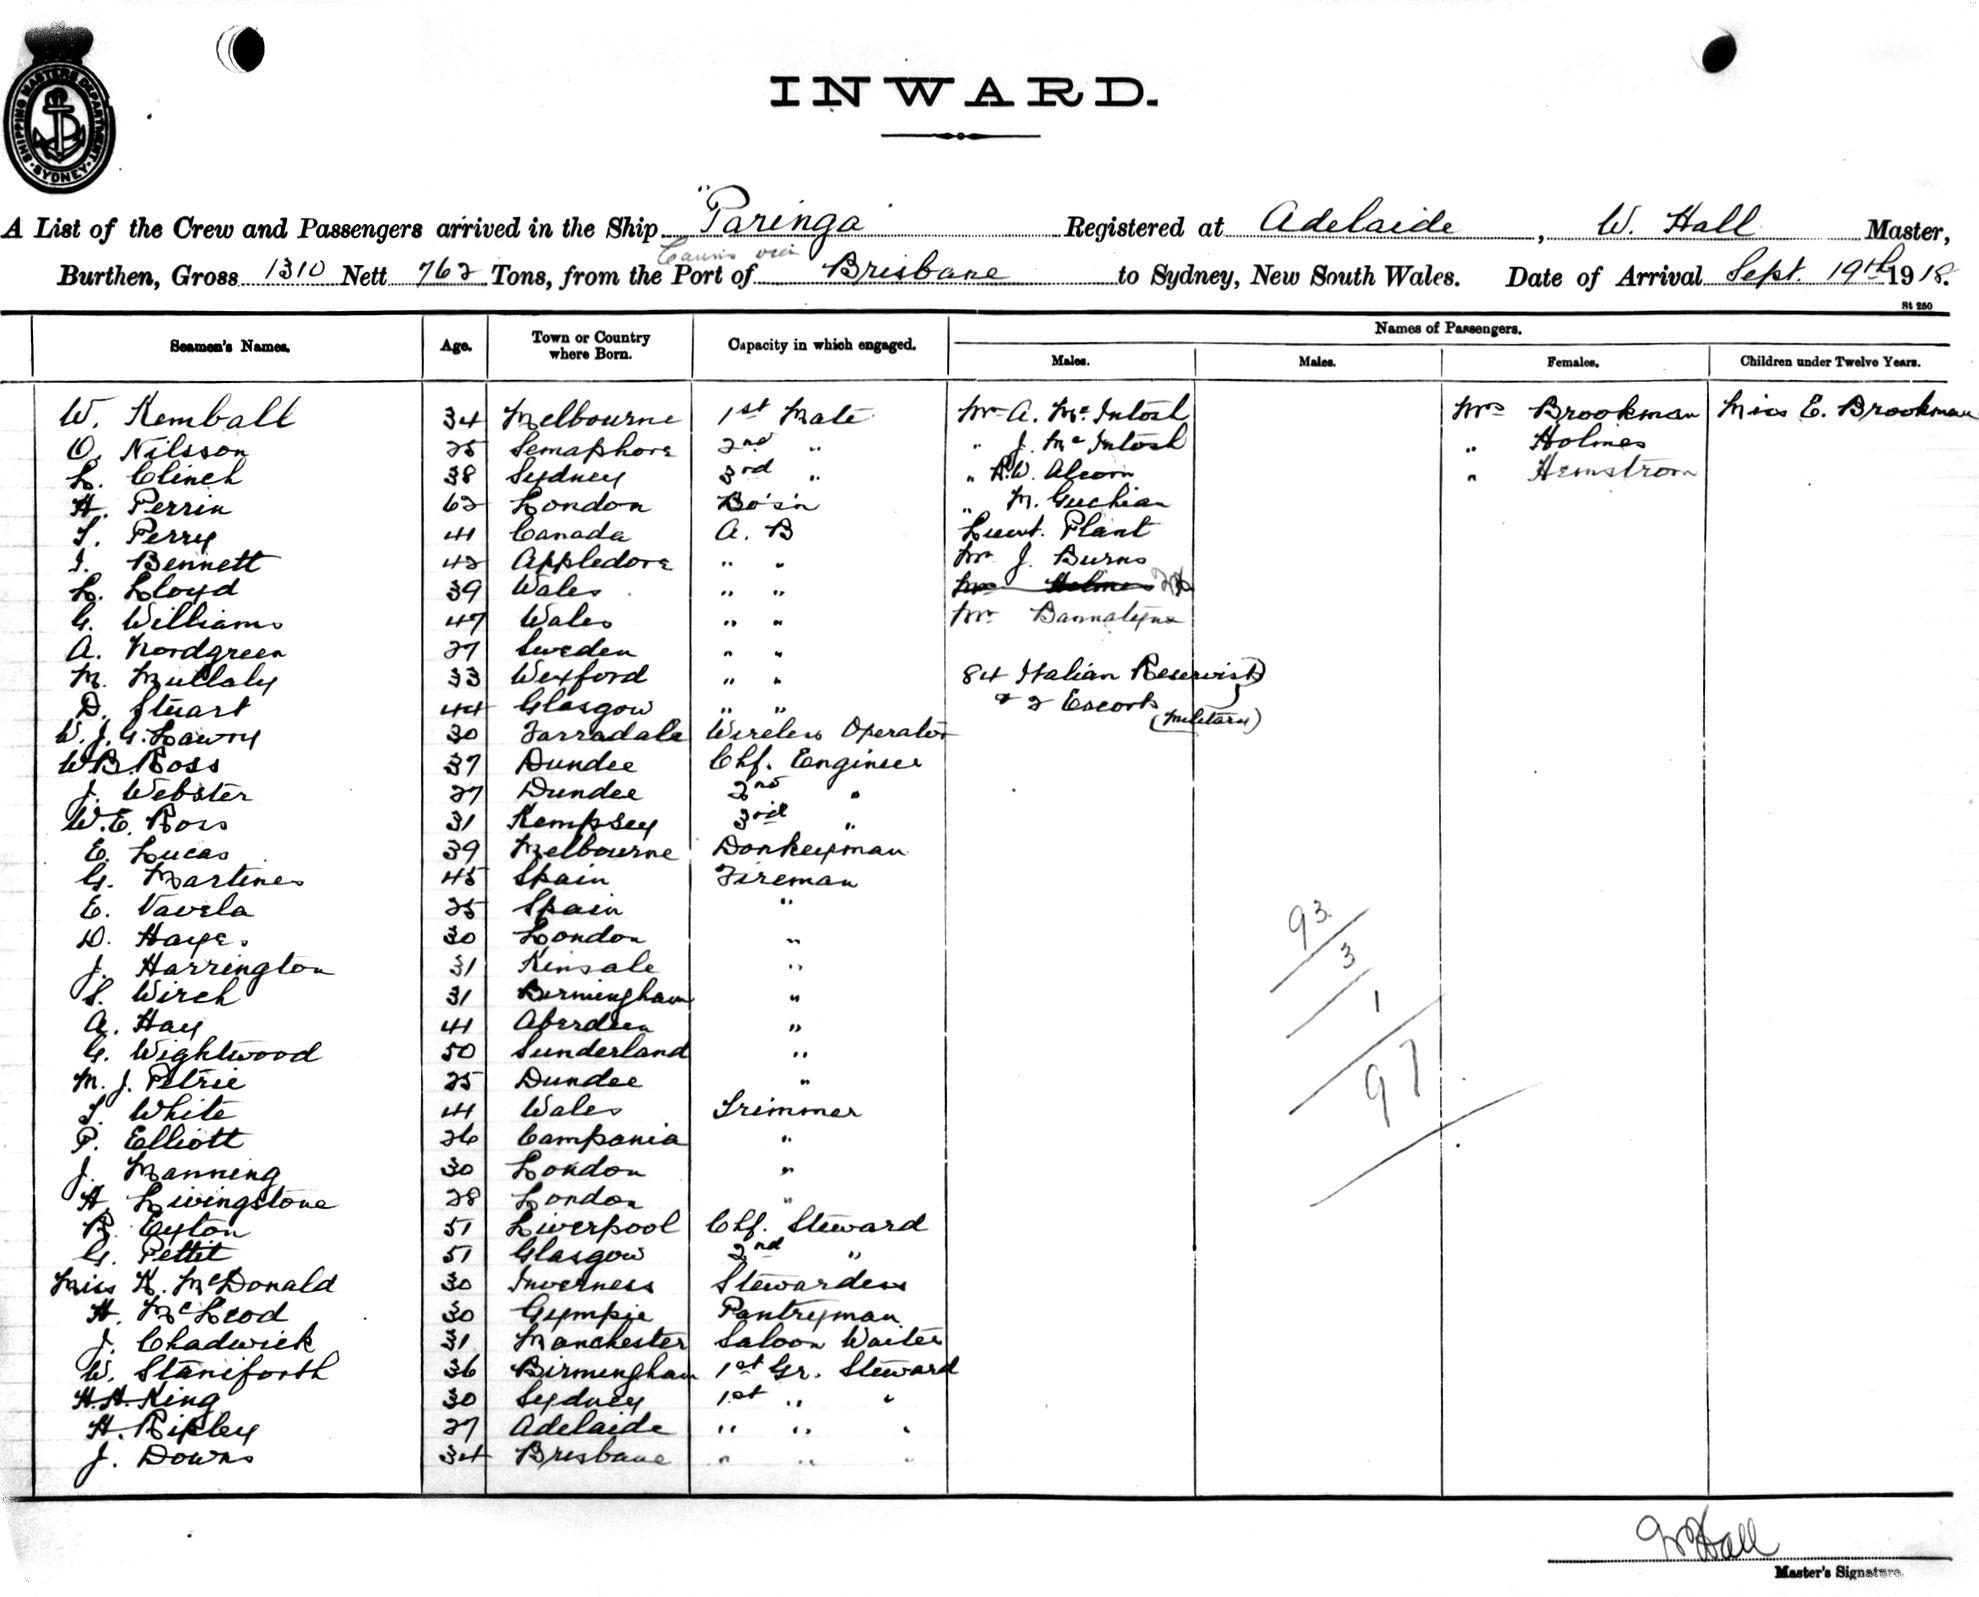 SHIPPING MASTERS DEPARTMENT
SYDNEY
INWARD.
A List of the Crew and Passengers arrived in the Ship "Paringa Registered at Adelaide, W. Hall Master,
Cairns via
Burthen, Gross 1310 Nett 762 Tons, from the Port of Brisbane to Sydney, New South Wales. Date of Arrival Sept. 19th 1918.
St 250
Seamen's Names. Age. Town or Country where Born. Capacity in which engaged. Names of Passengers.
Males. Males. Females. Children under Twelve Years.
W. Kemball 34 Melbourne 1st Mate Mr A. McIntosh Mrs Brookman Miss E. Brookman
O. Nilsson 25 Semaphore 2nd " " J. McIntosh " Holmes
L. Clinch 38 Sydney 3rd " " R.W. Alcorn " Hemstrom
H. Perrin 62 London Bo's'n " M. Guchian
T. Perry 41 Canada A. B Lieut. Plant
I. Bennett 42 Appledore " " Mr J. Burns
L. Lloyd 39 Wales " " Mrs Holmes
G. Williams 47 Wales " " Mr Bannatyne
A. Nordgreen 27 Sweden " "
M. Mullaly 33 Wexford " " 84 Italian Reservists
D. Stuart 44 Glasgow " " & 2 Escorts (military)
W. J. G. Lawry 30 Tarradale Wireless Operator
W B. Ross 37 Dundee Chf. Engineer
J. Webster 27 Dundee 2nd "
W. E. Ross 31 Kempsey 3rd "
E. Lucas 39 Melbourne Donkeyman
G. Martines 45 Spain Fireman
E. Vavela 25 Spain "
D. Hayes 30 London "
J. Harrington 31 Kinsale "
S. Wirch 31 Birmingham "
A. Hay 41 Aberdeen "
G. Wightwood 50 Sunderland "
M. J. Petrie 25 Dundee "
T. White 41 Wales Trimmer
P. Elliott 26 Campania "
J. Manning 30 London "
H. Livingstone 28 London "
R. Eyton 51 Liverpool Chf. Steward
G. Pettit 51 Glasgow 2nd "
Miss K. McDonald 30 Inverness Stewardess
H. McLeod 30 Gympie Pantryman
J. Chadwick 31 Manchester Saloon Waiter
W. Staniforth 36 Birmingham 1st Gr. Steward
H. H. King 30 Sydney 1st " "
H. Ripley 27 Adelaide " " "
J. Downs 34 Brisbane " " "
93
3
1
97
W Hall
Master's Signature.